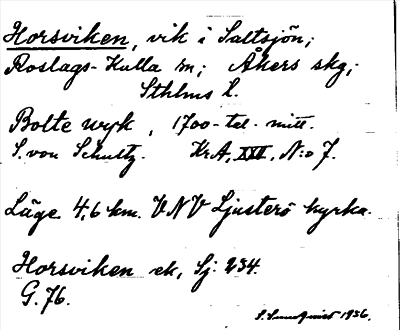 Horsviken, vik i Saltsjön;
Roslags-Kulla sn; Åkers skg;
Sthlms l.
Bolte wyk, 1700-tal. mitt.
S. von Schultz. KrA, XXI, N:o 7.
Läge 4,6 km. VNV Ljusterö kyrka.
Horsviken ek, Sj. 234.
G. 76.
1936.